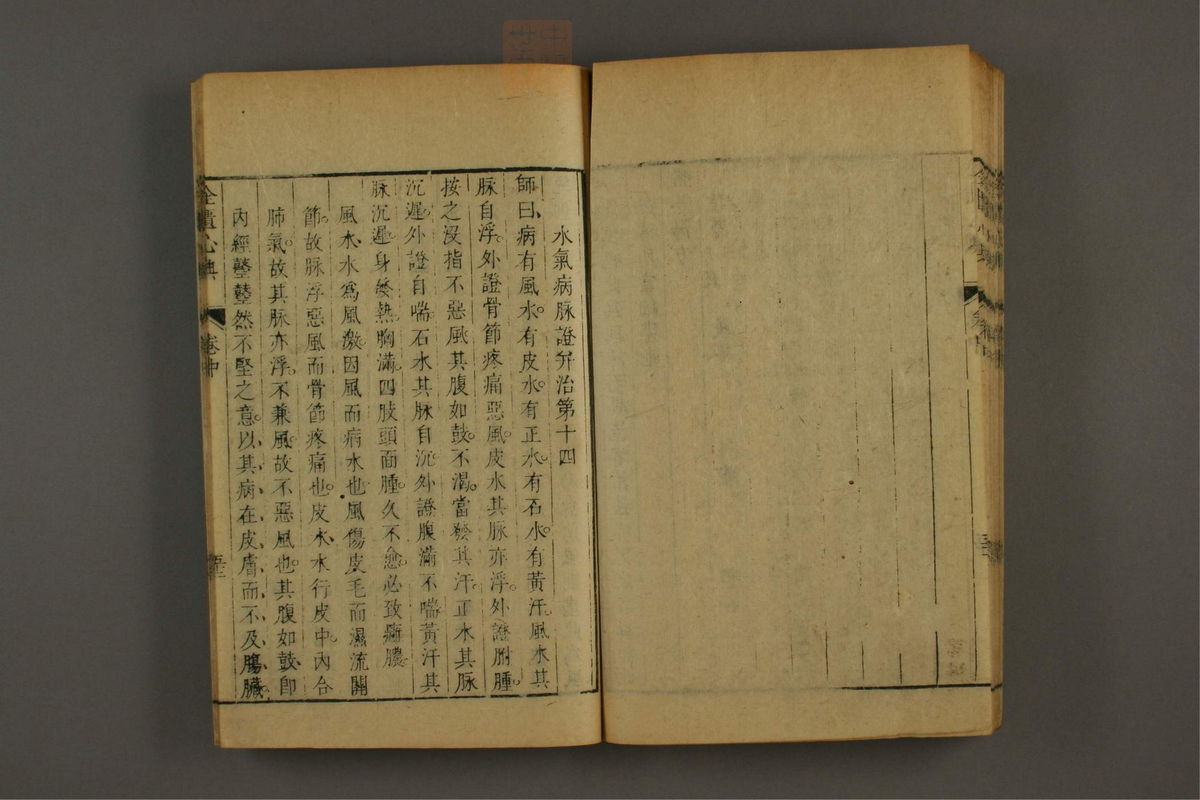 水氣病脉證幷治第十四
師曰病有風水。有皮水。有正水。有石水。有黃汗。風水其
脉自浮。外證骨節疼痛惡風。皮水其脉亦浮。外證胕腫。
按之沒指不惡風其腹如鼓。不渴。當發其汗。正水其脉
沉遲。外證自喘。石水其脉自沉。外證腹滿不喘黃汗其
脉沉遲。身發熱。胸滿。四肢頭面腫。久不愈。必致癰膿
風水、水爲風激。因風而病水也。風傷皮毛。而濕流關
節。故脉浮惡風而骨節疼痛也。皮水、水行皮中。內合
肺氣。故其脉亦浮。不兼風。故不惡風也。其腹如鼓、卽
內經鼞鼞然不堅之意。以其病在皮膚。而不及腸臟。
金匱心典
卷中